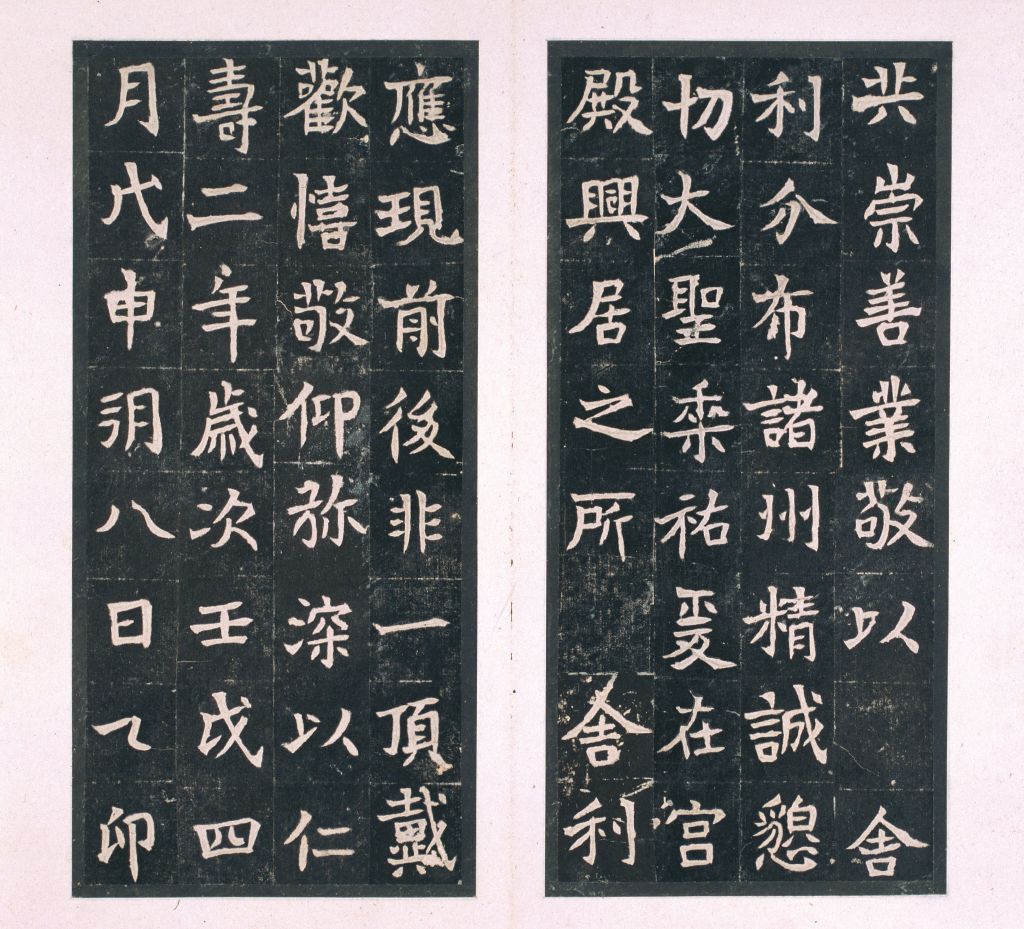 共崇善業敬以舍
利分布諸州精誠懇
切大聖垂祐爰在宮
殿興居之所舍利
應現前後非一頂戴
歡憘敬仰弥深以仁
壽二年歲次壬戌四
月戊申朔八日乙卯